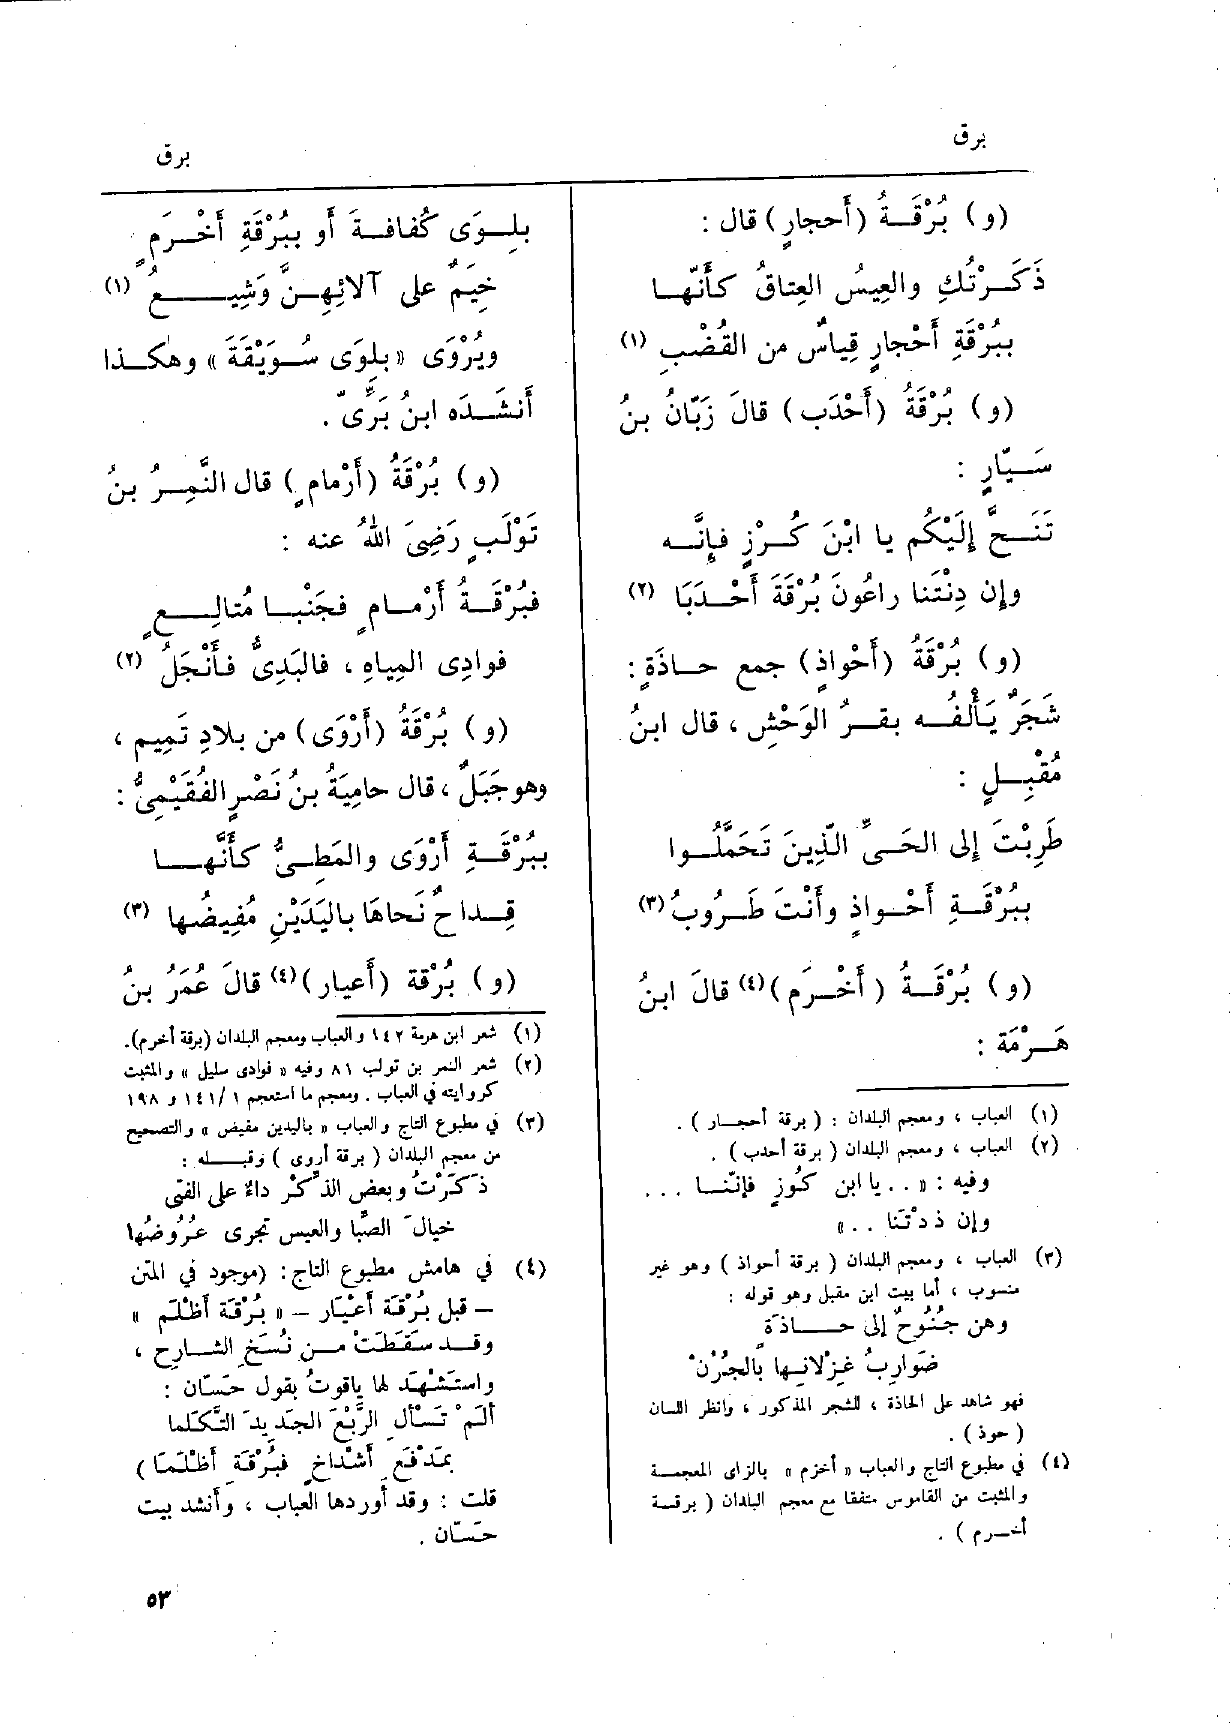 برق
برق
(و) بُرْقَـةُ (أَحجارٍ) قال :
ذَكَـرْتُكِ والعِيسُ العِتاقُ كأَنَّهـا
بِبُرْقَةِ أَحْجارٍ قِياسٌ من القُضْبِ (١)
(و) بُرْقَةُ (أَحْدَب) قالَ زَبّانُ بنُ
سَـيّارٍ :
تَنَـحَّ إِلَيْكُم يا ابْنَ كُـرْزٍ فإِنَّـه
وإِن دِنْتَنا راعُونَ بُرْقَةَ أَحْـدَبَا (٢)
(و) بُرْقَةُ (أَحْواذٍ) جمع حـاذَةٍ :
شَجَرٌ يَأْلَفُـه بقـرُ الوَحْشِ ، قال ابنُ
مُقْبِـلٍ :
طَرِبْتَ إِلى الحَىِّ الَّذِينَ تَحَمَّلُـوا
بِبُرْقَـةِ أَحْـواذٍ وأَنْتَ طَـرُوبُ (٣)
(و) بُرْقَـةُ (أَخْـرَم) (٤) قالَ ابنُ
هَـرْمَة :
(١) العباب ، ومعجم البلدان : ( برقة أحجـار ) .
(٢) العباب ، ومعجم البلدان ( برقة أحدب ) .
وفيه : « . . يا ابن كُوزٍ فإنّنـا . . .
وإن ذدْتَنا . . »
(٣) العباب ، ومعجم البلدان ( برقة أحواذ ) وهو غير
منسوب ، أما بيت ابن مقبل وهو قوله :
وهن جُنُوحٌ إلى حـاذَةٍ
ضَوارِبُ غِزْلانِها بالجُرُنْ
فهو شاهد على الحاذة ، للشجر المذكور ، وانظر اللسان
( حوذ ) .
(٤) في مطبوع التاج والعباب « أخزم » بالزاى المعجمـة
والمثبت من القاموس متفقا مع معجم البلدان ( برقـة
أخـرم ) .
بلِـوَى كُفافـةَ أَو بِبُرْقَةِ أَخْـرَمٍ
خِيَمٌ على آلائِهِـنَّ وَشِيـعُ (١)
ويُرْوَى « بلِوَى سُـوَيْقَةَ » وهٰكـذا
أَنشَـدَه ابنُ بَرِّىّ .
(و) بُرْقَةُ (أَرْمامٍ) قال النَّمِـرُ بنُ
تَوْلَبٍ رَضِىَ اللهُ عنه :
فبُرْقَـةُ أَرْمـامٍ فجَنْبـا مُتالِـعٍ
فوادِى المِياهِ ، فالبَدِىُّ فأَنْجَلُ (٢)
(و) بُرْقَةُ (أَرْوَى) من بلادِ تَمِيم ،
وهو جَبَلٌ ، قال حامِيَةُ بنُ نَصْرٍ الفُقَيْمِىُّ :
بِبُرْقَـةِ أَرْوَى والمَطِـىُّ كأَنَّهـا
قِـداحٌ نَحاهَا باليَدَيْنِ مُفِيضُها (٣)
(و) بُرْقة (أَعيار) (٤) قالَ عُمَرُ بنُ
(١) شعر ابن هرمة ١٤٢ والعباب ومعجم البلدان (برقة أخرم).
(٢) شعر النمر بن تولب ٨١ وفيه « فوادى سليل » والمثبت
كروايته في العباب . ومعجم ما استعجم ١ /١٤١ و ١٩٨
(٣) في مطبوع التاج والعباب « باليدين مفيض » والتصحيح
من معجم البلدان ( برقة أروى ) وقبـله :
ذَكَرْتُ وبعض الذِّكْر داءٌ على الفتى
خيالَ الصِّبا والعيس تجرى عُرُوضُها
(٤) في هامش مطبوع التاج : (موجود في المتن
– قبل بُرْقَة أَعْيَار – « بُرْقَة أَظْلَم »
وقـد سَقَطَتْ مـن نُسَخِ الشـارح ،
واستَشْهَد لها ياقوتُ بقول حَسّان :
ألَمْ تَسْألِ الرَّبْعَ الجَدِيدَ التَّكَلُّما
بمَدْفَعِ أشْداخٍ فبُرْقَةِ أظْلَمَا )
قلت : وقد أوردها العباب ، وأنشد بيت
حَسّان .
٥٣